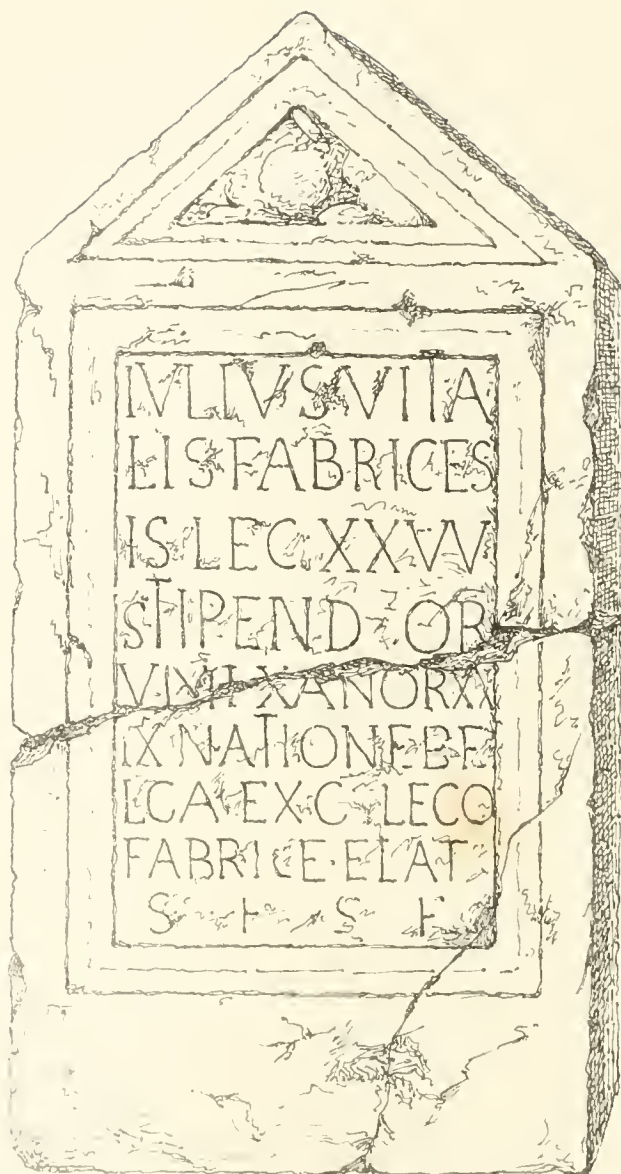 IVLIVS VITA
LIS FABRICES
IS LEG XXVV
STIPEND OR
ANOR XX
IX NATIONE BE
LGA EX C LEGO
FABRICE·ELAT
S H S E